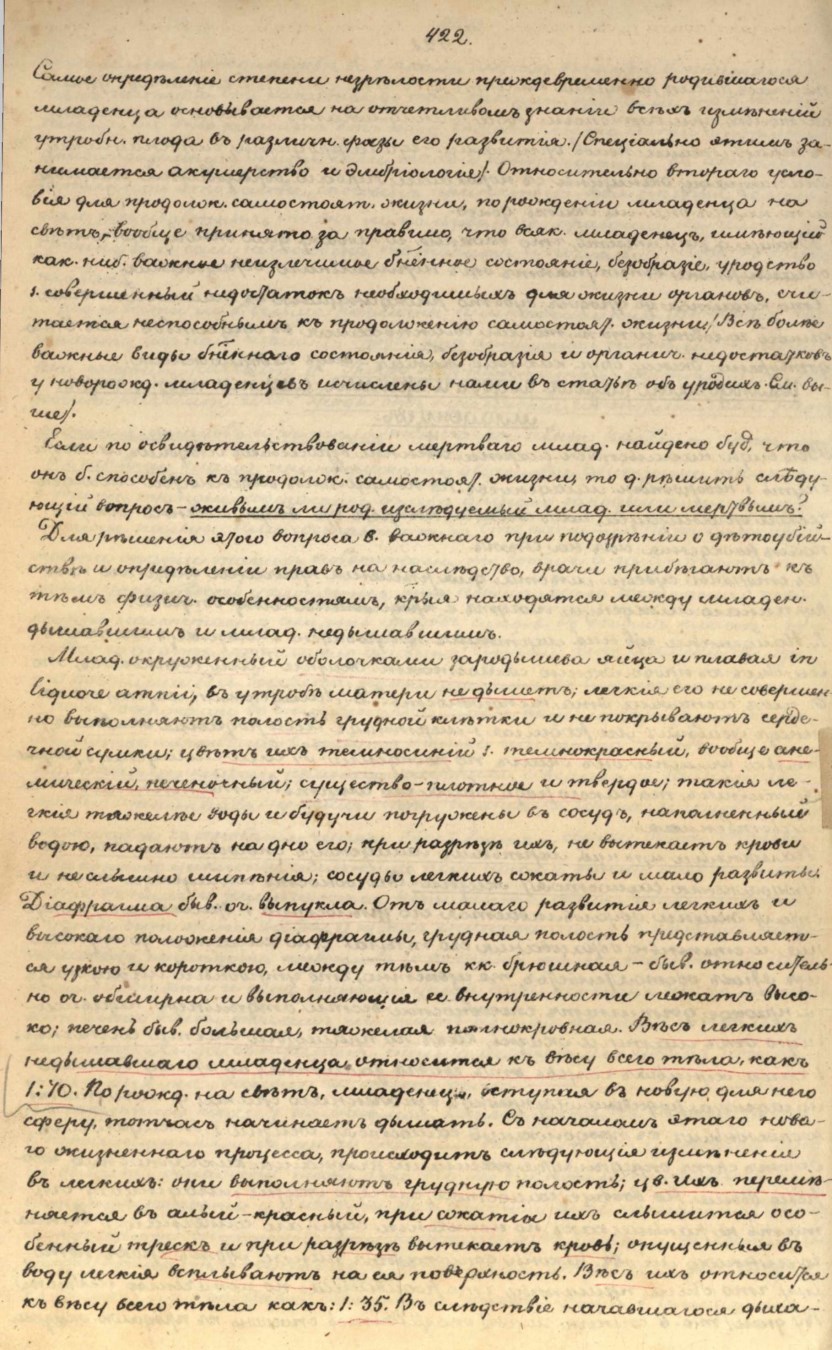 422.
Самое опредѣленіе степени незрѣлости преждевременно родившагося
младенца основывается на отчетливомъ знаніи всѣхъ измѣненій
утробн. плода въ различн. фазы его развитія. /Спеціально этимъ за-
нимается акушерство и эмбріологія/. Относительно втораго усло-
вія для продолж. самостоят. жизни, по рожденіи младенца на
свѣтъ, вообще принято за правило, что всяк. младенецъ, имѣющій
как. ниб. важное неизлечимое бнѣнное состояніе, безобразіе, уродство
s. совершенный недостатокъ необходимыхъ для жизни органовъ, счи-
тается неспособнымъ къ продолженію самостоят. жизни. /Всѣ болѣе
важные виды бнѣннаго состоянія, безобразія и органич. недостатковъ
у новорожд. младенцевъ исчислены нами въ статьѣ объ уродцахъ. См. вы-
ше/.
Если по освидѣтельствованіи мертваго млад. найдено буд., что
онъ б. способенъ къ продолж. самостоят. жизни, то д. рѣшить слѣду-
ющій вопросъ – живымъ ли род. изслѣдуемый млад. или мертвымъ?
Для рѣшенія этого вопроса в. важнаго при подозрѣніи о дѣтоубій-
ствѣ и опредѣленіи правъ на наслѣдство, врачи прибѣгаютъ къ
тѣмъ физич. особенностямъ, крыя находятся между младен.
дышавшимъ и млад. недышавшимъ.
Млад. окруженный оболочками зародышева яйца и плавая in
liquore amnii, въ утробѣ матери не дышетъ; легкія его не совершен-
но выполняютъ полость грудной клѣтки и не покрываютъ серде-
чной сумки; цвѣтъ ихъ темносиній s. темнокрасный, вообще ане-
мическій, печеночный; существо – плотное и твердое; такія ле-
гкія тяжелѣе воды и будучи погружены въ сосудъ, наполненный
водою, падаютъ на дно его; при разрѣзѣ ихъ, не вытекаетъ крови
и не слышно шипѣнія; сосуды легкихъ сжаты и мало развиты.
Діафрагма быв. оч. выпукла. Отъ малаго развитія легкихъ и
высокаго положенія діафрагмы, грудная полость представляет-
ся узкою и короткою, между тѣмъ кк. брюшная – быв. относитель-
но оч. обширна и выполняющія ее внутренности лежатъ высо-
ко; печень быв. большая, тяжелая полнокровная. Вѣсъ легкихъ
недышавшаго младенца относится къ вѣсу всего тѣла, какъ
1:70. По рожд. на свѣтъ, младенец., вступия въ новую для него
сферу, тотчасъ начинаетъ дышать. Съ началомъ этаго ново-
го жизненнаго процесса, происходитъ слѣдующія измѣненія
въ легкихъ: они выполняютъ грудную полость; цв. ихъ перемѣ-
няется въ алый – красный, при сжатіи ихъ слышится осо-
бенный трескъ и при разрѣзѣ вытекаетъ кровь; опущенныя въ
воду легкія всплываютъ на ея поверхность. Вѣсъ ихъ относится
къ вѣсу всего тѣла какъ: 1:35. Въ слѣдствіе начавшагося дыха-